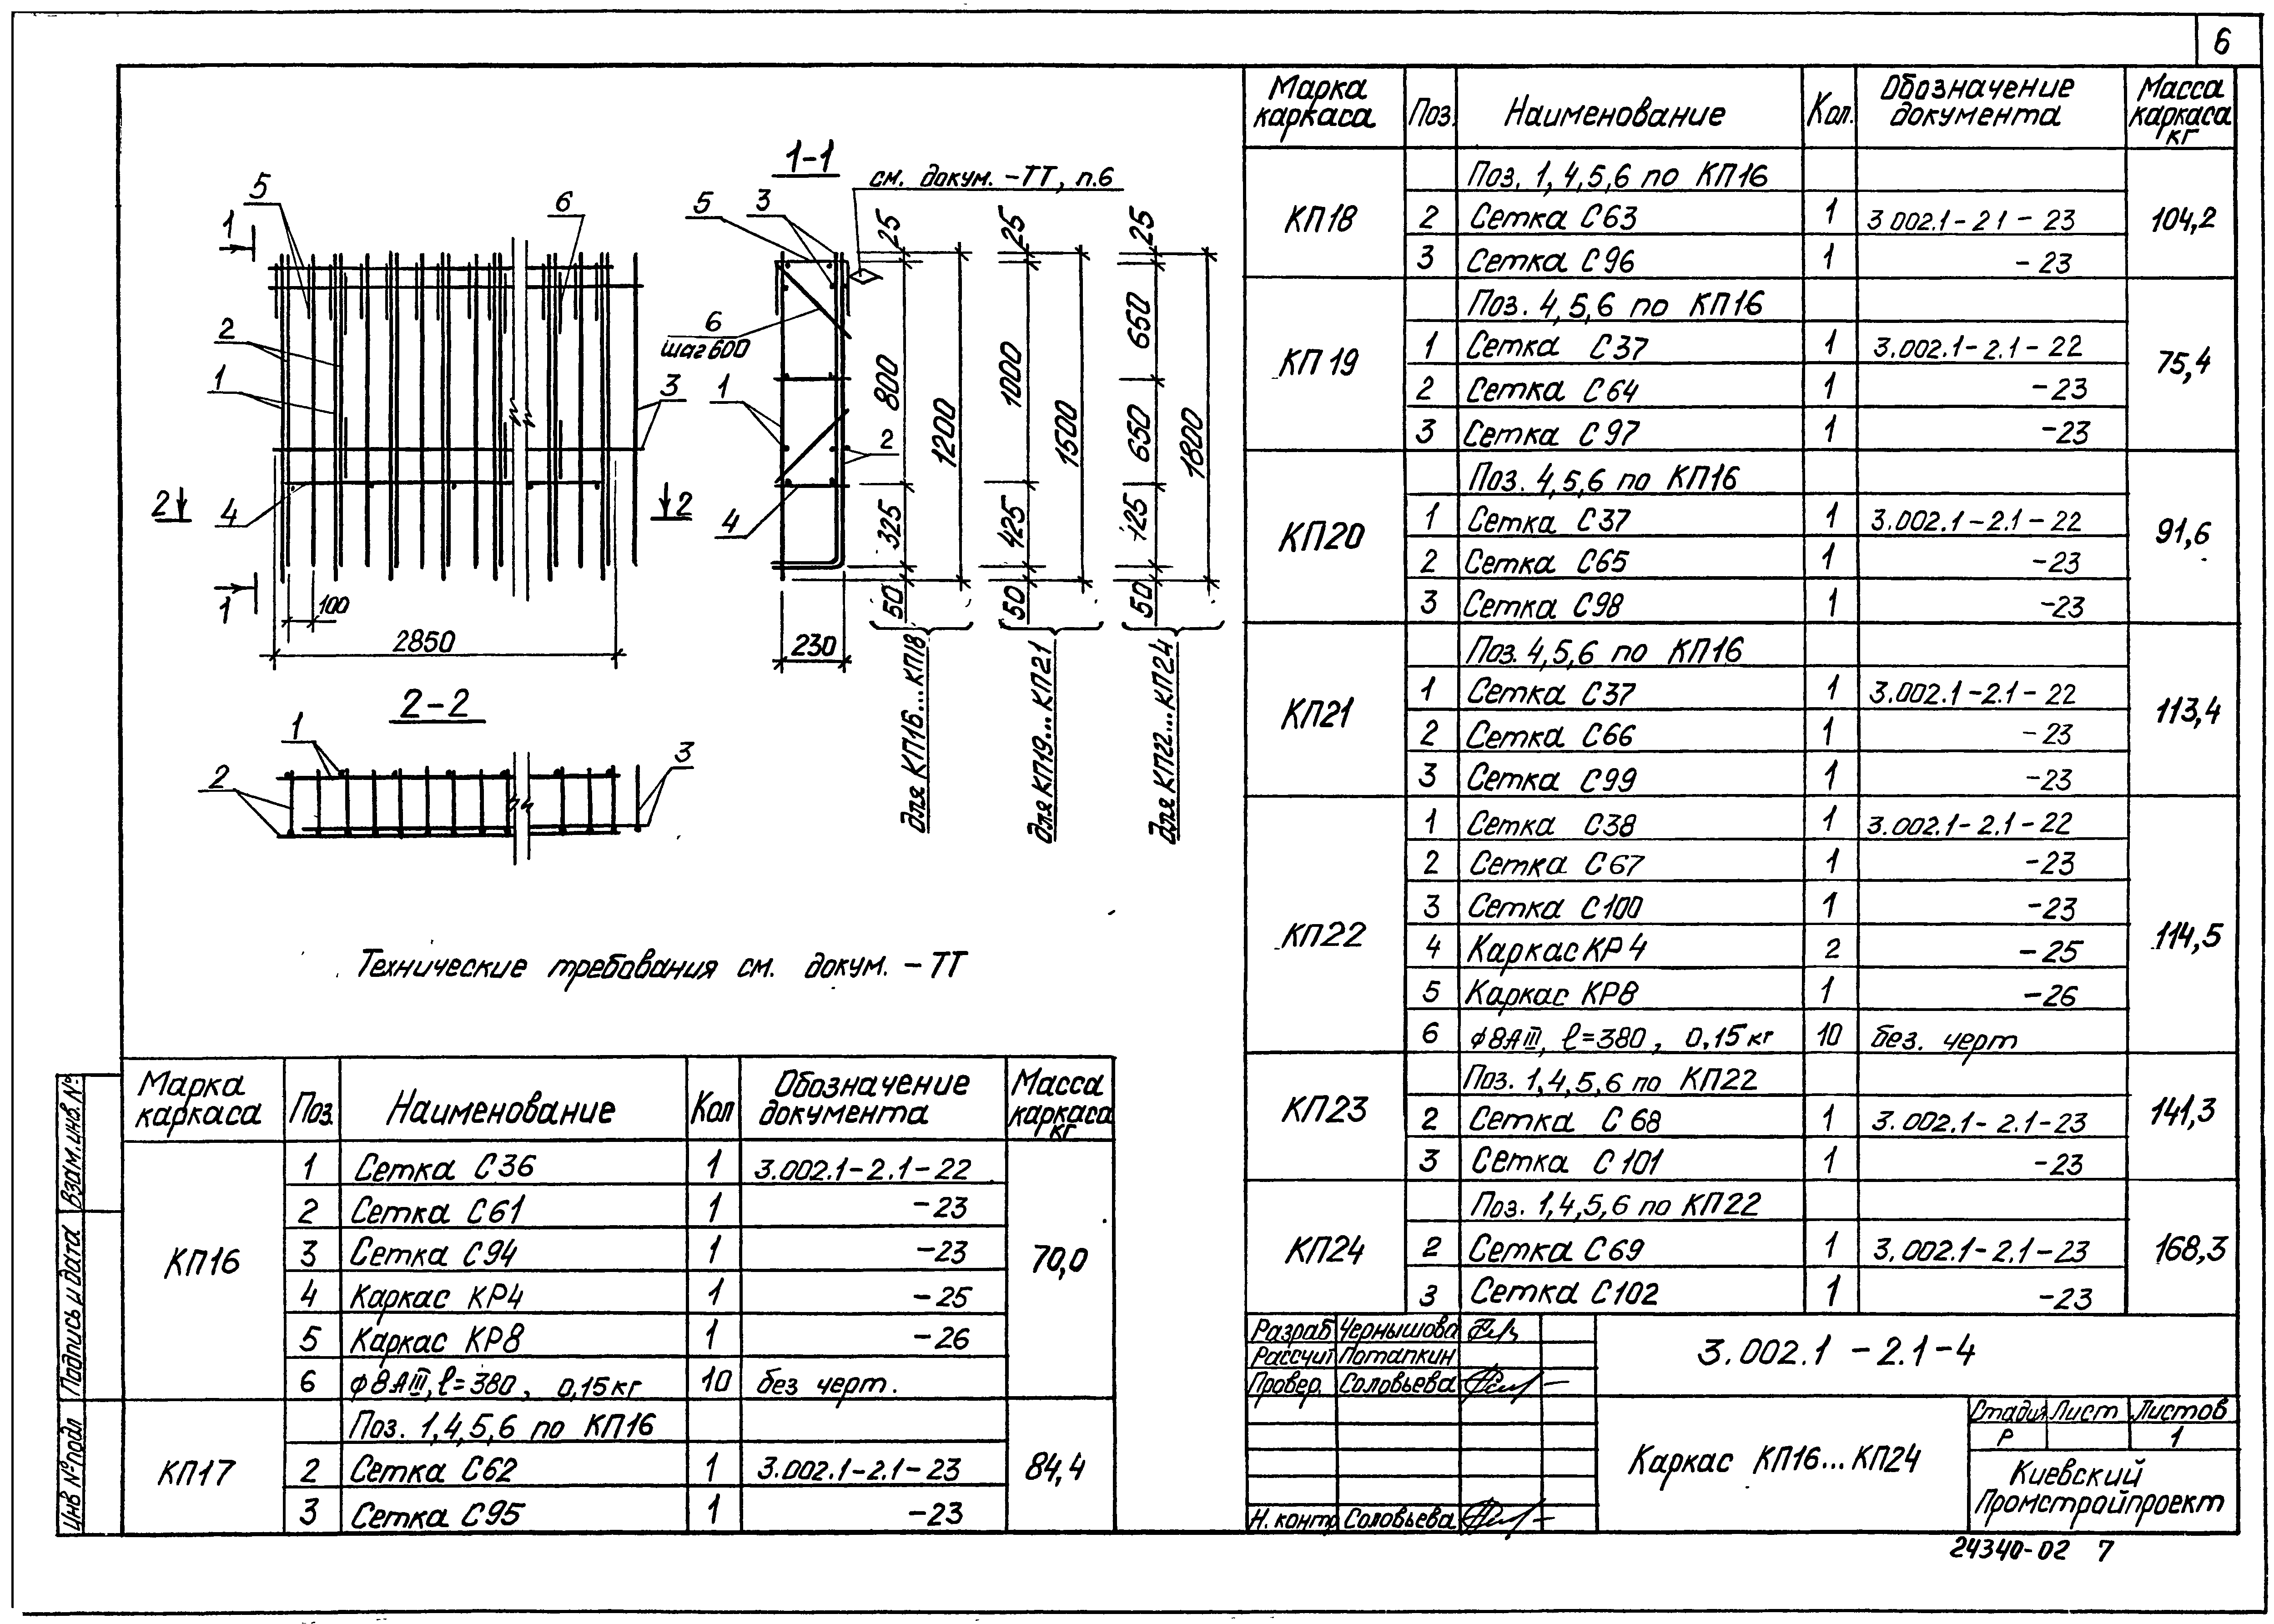 6
1-1
см. докум. -ТТ, п.6
5
6
5
3
1
1
2
1
3
4
2
2
6
шаг 600
1
2
4
100
2850
230
25
800
325
50
1200
для КП16...КП18
25
1000
425
50
1500
для КП19...КП21
25
650
650
425
50
1800
для КП22...КП24
2-2
1
2
3
Технические требования см. докум. -ТТ
Марка каркаса Поз. Наименование Кол Обозначение документа Масса каркаса кг
КП16 70,0
1 Сетка С36 1 3.002.1-2.1-22
2 Сетка С61 1 -23
3 Сетка С94 1 -23
4 Каркас КР4 1 -25
5 Каркас КР8 1 -26
6 ф8АIII, ℓ=380, 0,15кг 10 без черт.
КП17 84,4
Поз. 1,4,5,6 по КП16
2 Сетка С62 1 3.002.1-2.1-23
3 Сетка С95 1 -23
Марка каркаса Поз. Наименование Кол. Обозначение документа Масса каркаса кг
КП18 104,2
Поз. 1,4,5,6 по КП16
2 Сетка С63 1 3 002.1-2 1-23
3 Сетка С96 1 -23
КП19 75,4
Поз. 4,5,6 по КП16
1 Сетка С37 1 3.002.1-2.1-22
2 Сетка С64 1 -23
3 Сетка С97 1 -23
КП20 91,6
Поз. 4,5,6 по КП16
1 Сетка С37 1 3.002.1-2.1-22
2 Сетка С65 1 -23
3 Сетка С98 1 -23
КП21 113,4
Поз. 4,5,6 по КП16
1 Сетка С37 1 3.002.1-2.1-22
2 Сетка С66 1 -23
3 Сетка С99 1 -23
КП22 114,5
1 Сетка С38 1 3.002.1-2.1-22
2 Сетка С67 1 -23
3 Сетка С100 1 -23
4 Каркас КР4 2 -25
5 Каркас КР8 1 -26
6 ф8АIII, ℓ=380, 0,15кг 10 без. черт
КП23 141,3
Поз. 1,4,5,6 по КП22
2 Сетка С68 1 3.002.1-2.1-23
3 Сетка С101 1 -23
КП24 168,3
Поз. 1,4,5,6 по КП22
2 Сетка С69 1 3.002.1-2.1-23
3 Сетка С102 1 -23
Разраб Чернышова
Рассчит Потапкин
Провер. Соловьева
Н. контр Соловьева
3.002.1-2.1-4
Каркас КП16...КП24
Стадия Лист Листов
Р 1
Киевский
Промстройпроект
24340-02 7
Взам.инв.№
Подпись и дата
Инв №подл